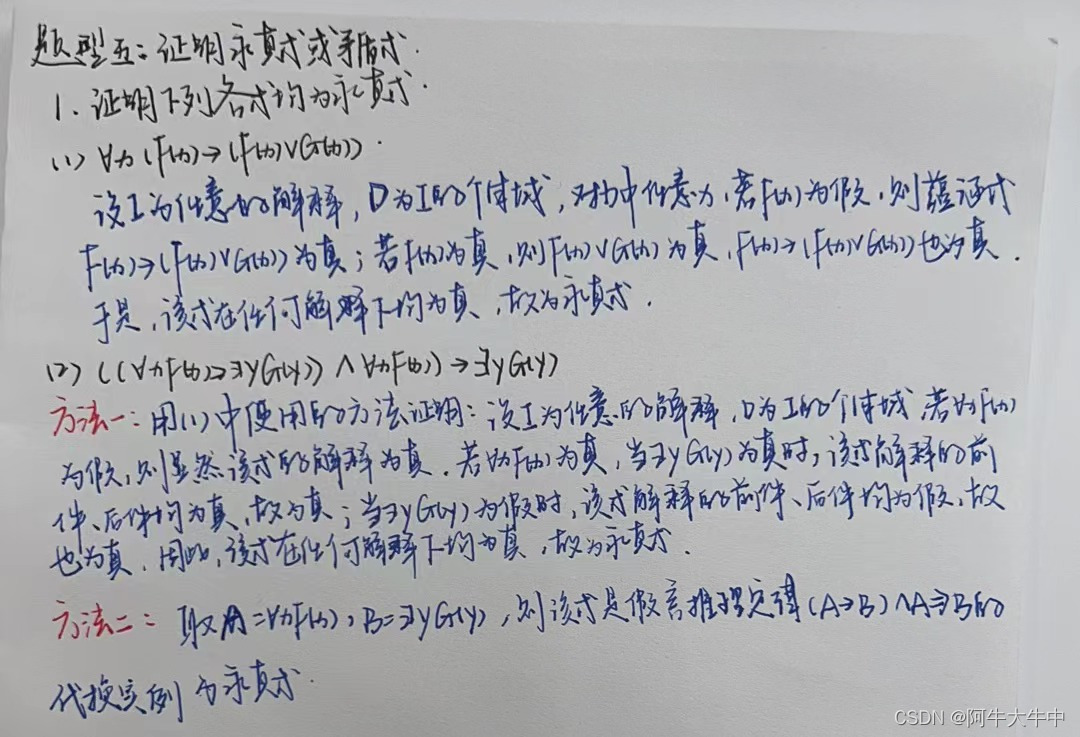 题型五：证明永真式或矛盾式.
1. 证明下列各式均为永真式.
(1) ∀x(F(x)→(F(x)∨G(x))).
设I为任意的解释，D为I的个体域，对D中任意x，若F(x)为假，则蕴涵式
F(x)→(F(x)∨G(x))为真；若F(x)为真，则F(x)∨G(x)为真，F(x)→(F(x)∨G(x))也为真.
于是，该式在任何解释下均为真，故为永真式.
(2) ((∀xF(x)→∃yG(y))∧∀xF(x))→∃yG(y)
方法一：用(1)中使用的方法证明：设I为任意的解释，D为I的个体域，若∀xF(x)
为假，则显然该式的解释为真.若∀xF(x)为真，当∃yG(y)为真时，该式解释的前
件、后件均为真，故为真；当∃yG(y)为假时，该式解释的前件、后件均为假，故
也为真.因此，该式在任何解释下均为真，故为永真式.
方法二：取A=∀xF(x)，B=∃yG(y)，则该式是假言推理定律(A→B)∧A⇒B的
代换实例 为永真式.
CSDN @阿牛大牛中